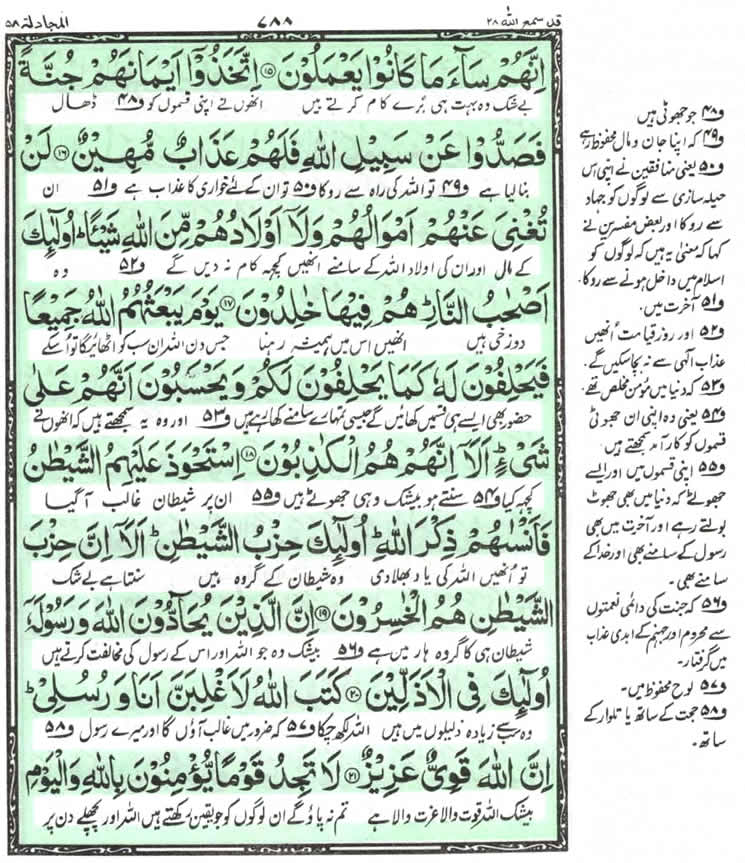 قد سمع اللہ ۲۸
۷۸۸
المجادلة ۵۸
اِنَّهُمْ سَآءَ مَا كَانُوْا يَعْمَلُوْنَ ﴿۱۵﴾ اِتَّخَذُوْٓا اَيْمَانَهُمْ جُنَّةً
بے شک وہ بہت ہی بُرے کام کرتے ہیں انھوں نے اپنی قسموں کو و۴۸ ڈھال
فَصَدُّوْا عَنْ سَبِيْلِ اللّٰهِ فَلَهُمْ عَذَابٌ مُّهِيْنٌ ﴿۱۶﴾ لَنْ
بنالیا ہے و۴۹ تو اللہ کی راہ سے روکا و۵۰ تو ان کے لئے خواری کا عذاب ہے و۵۱ ان
تُغْنِيَ عَنْهُمْ اَمْوَالُهُمْ وَلَآ اَوْلَادُهُمْ مِّنَ اللّٰهِ شَيْئًا ؕ اُولٰٓئِكَ
کے مال اور ان کی اولاد اللہ کے سامنے انھیں کچھ کام نہ دیں گے و۵۲ وہ
اَصْحٰبُ النَّارِ ؕ هُمْ فِيْهَا خٰلِدُوْنَ ﴿۱۷﴾ يَوْمَ يَبْعَثُهُمُ اللّٰهُ جَمِيْعًا
دوزخی ہیں انھیں اس میں ہمیشہ رہنا جس دن اللہ ان سب کو اٹھائے گا تو اُسکے
فَيَحْلِفُوْنَ لَهٗ كَمَا يَحْلِفُوْنَ لَكُمْ وَيَحْسَبُوْنَ اَنَّهُمْ عَلٰى
حضور بھی ایسے ہی قسمیں کھائیں گے جیسی تمہارے سامنے کھا رہے ہیں و۵۳ اور وہ یہ سمجھتے ہیں کہ انھوں نے
شَيْءٍ ؕ اَلَآ اِنَّهُمْ هُمُ الْكٰذِبُوْنَ ﴿۱۸﴾ اِسْتَحْوَذَ عَلَيْهِمُ الشَّيْطٰنُ
کچھ کیا و۵۴ سنتے ہو بیشک وہی جھوٹے ہیں و۵۵ ان پر شیطان غالب آگیا
فَاَنْسٰىهُمْ ذِكْرَ اللّٰهِ ؕ اُولٰٓئِكَ حِزْبُ الشَّيْطٰنِ ؕ اَلَآ اِنَّ حِزْبَ
تو اُنھیں اللہ کی یاد بھلادی وہ شیطان کے گروہ ہیں سنتا ہے بے شک
الشَّيْطٰنِ هُمُ الْخٰسِرُوْنَ ﴿۱۹﴾ اِنَّ الَّذِيْنَ يُحَآدُّوْنَ اللّٰهَ وَرَسُوْلَهٗٓ
شیطان ہی کا گروہ ہار میں ہے و۵۶ بیشک وہ جو اللہ اور اس کے رسول کی مخالفت کرتے ہیں
اُولٰٓئِكَ فِي الْاَذَلِّيْنَ ﴿۲۰﴾ كَتَبَ اللّٰهُ لَاَغْلِبَنَّ اَنَا وَرُسُلِيْ ؕ
وہ سب سے زیادہ ذلیلوں میں ہیں اللہ لکھ چکا و۵۷ کہ ضرور میں غالب آؤں گا اور میرے رسول و۵۸
اِنَّ اللّٰهَ قَوِيٌّ عَزِيْزٌ ﴿۲۱﴾ لَا تَجِدُ قَوْمًا يُّؤْمِنُوْنَ بِاللّٰهِ وَالْيَوْمِ
بیشک اللہ قوت والا عزت والا ہے تم نہ پاؤ گے ان لوگوں کو جو یقین رکھتے ہیں اللہ اور پچھلے دن پر
و۴۸ جو جھوٹی ہیں
و۴۹ کہ اپنا جان و مال محفوظ رہے
و۵۰ یعنی منافقین نے اپنی اس
حیلہ سازی سے لوگوں کو جہاد
سے روکا اور بعض مفسرین نے
کہا کہ معنیٰ یہ ہیں کہ لوگوں کو
اسلام میں داخل ہونے سے روکا۔
و۵۱ آخرت میں۔
و۵۲ اور روز قیامت اُنھیں
عذاب الٰہی سے نہ بچا سکیں گے۔
و۵۳ کہ دنیا میں مؤمن مخلص تھے۔
و۵۴ یعنی وہ اپنی ان جھوٹی
قسموں کو کار آمد سمجھتے ہیں
و۵۵ اپنی قسموں میں اور ایسے
جھوٹے کہ دنیا میں بھی جھوٹ
بولتے رہے اور آخرت میں بھی
رسول کے سامنے بھی اور خدا کے
سامنے بھی۔
و۵۶ کہ جنت کی دائمی نعمتوں
سے محروم اور جہنم کے ابدی عذاب
میں گرفتار۔
و۵۷ لوح محفوظ میں۔
و۵۸ حجت کے ساتھ یا تلوار کے
ساتھ۔